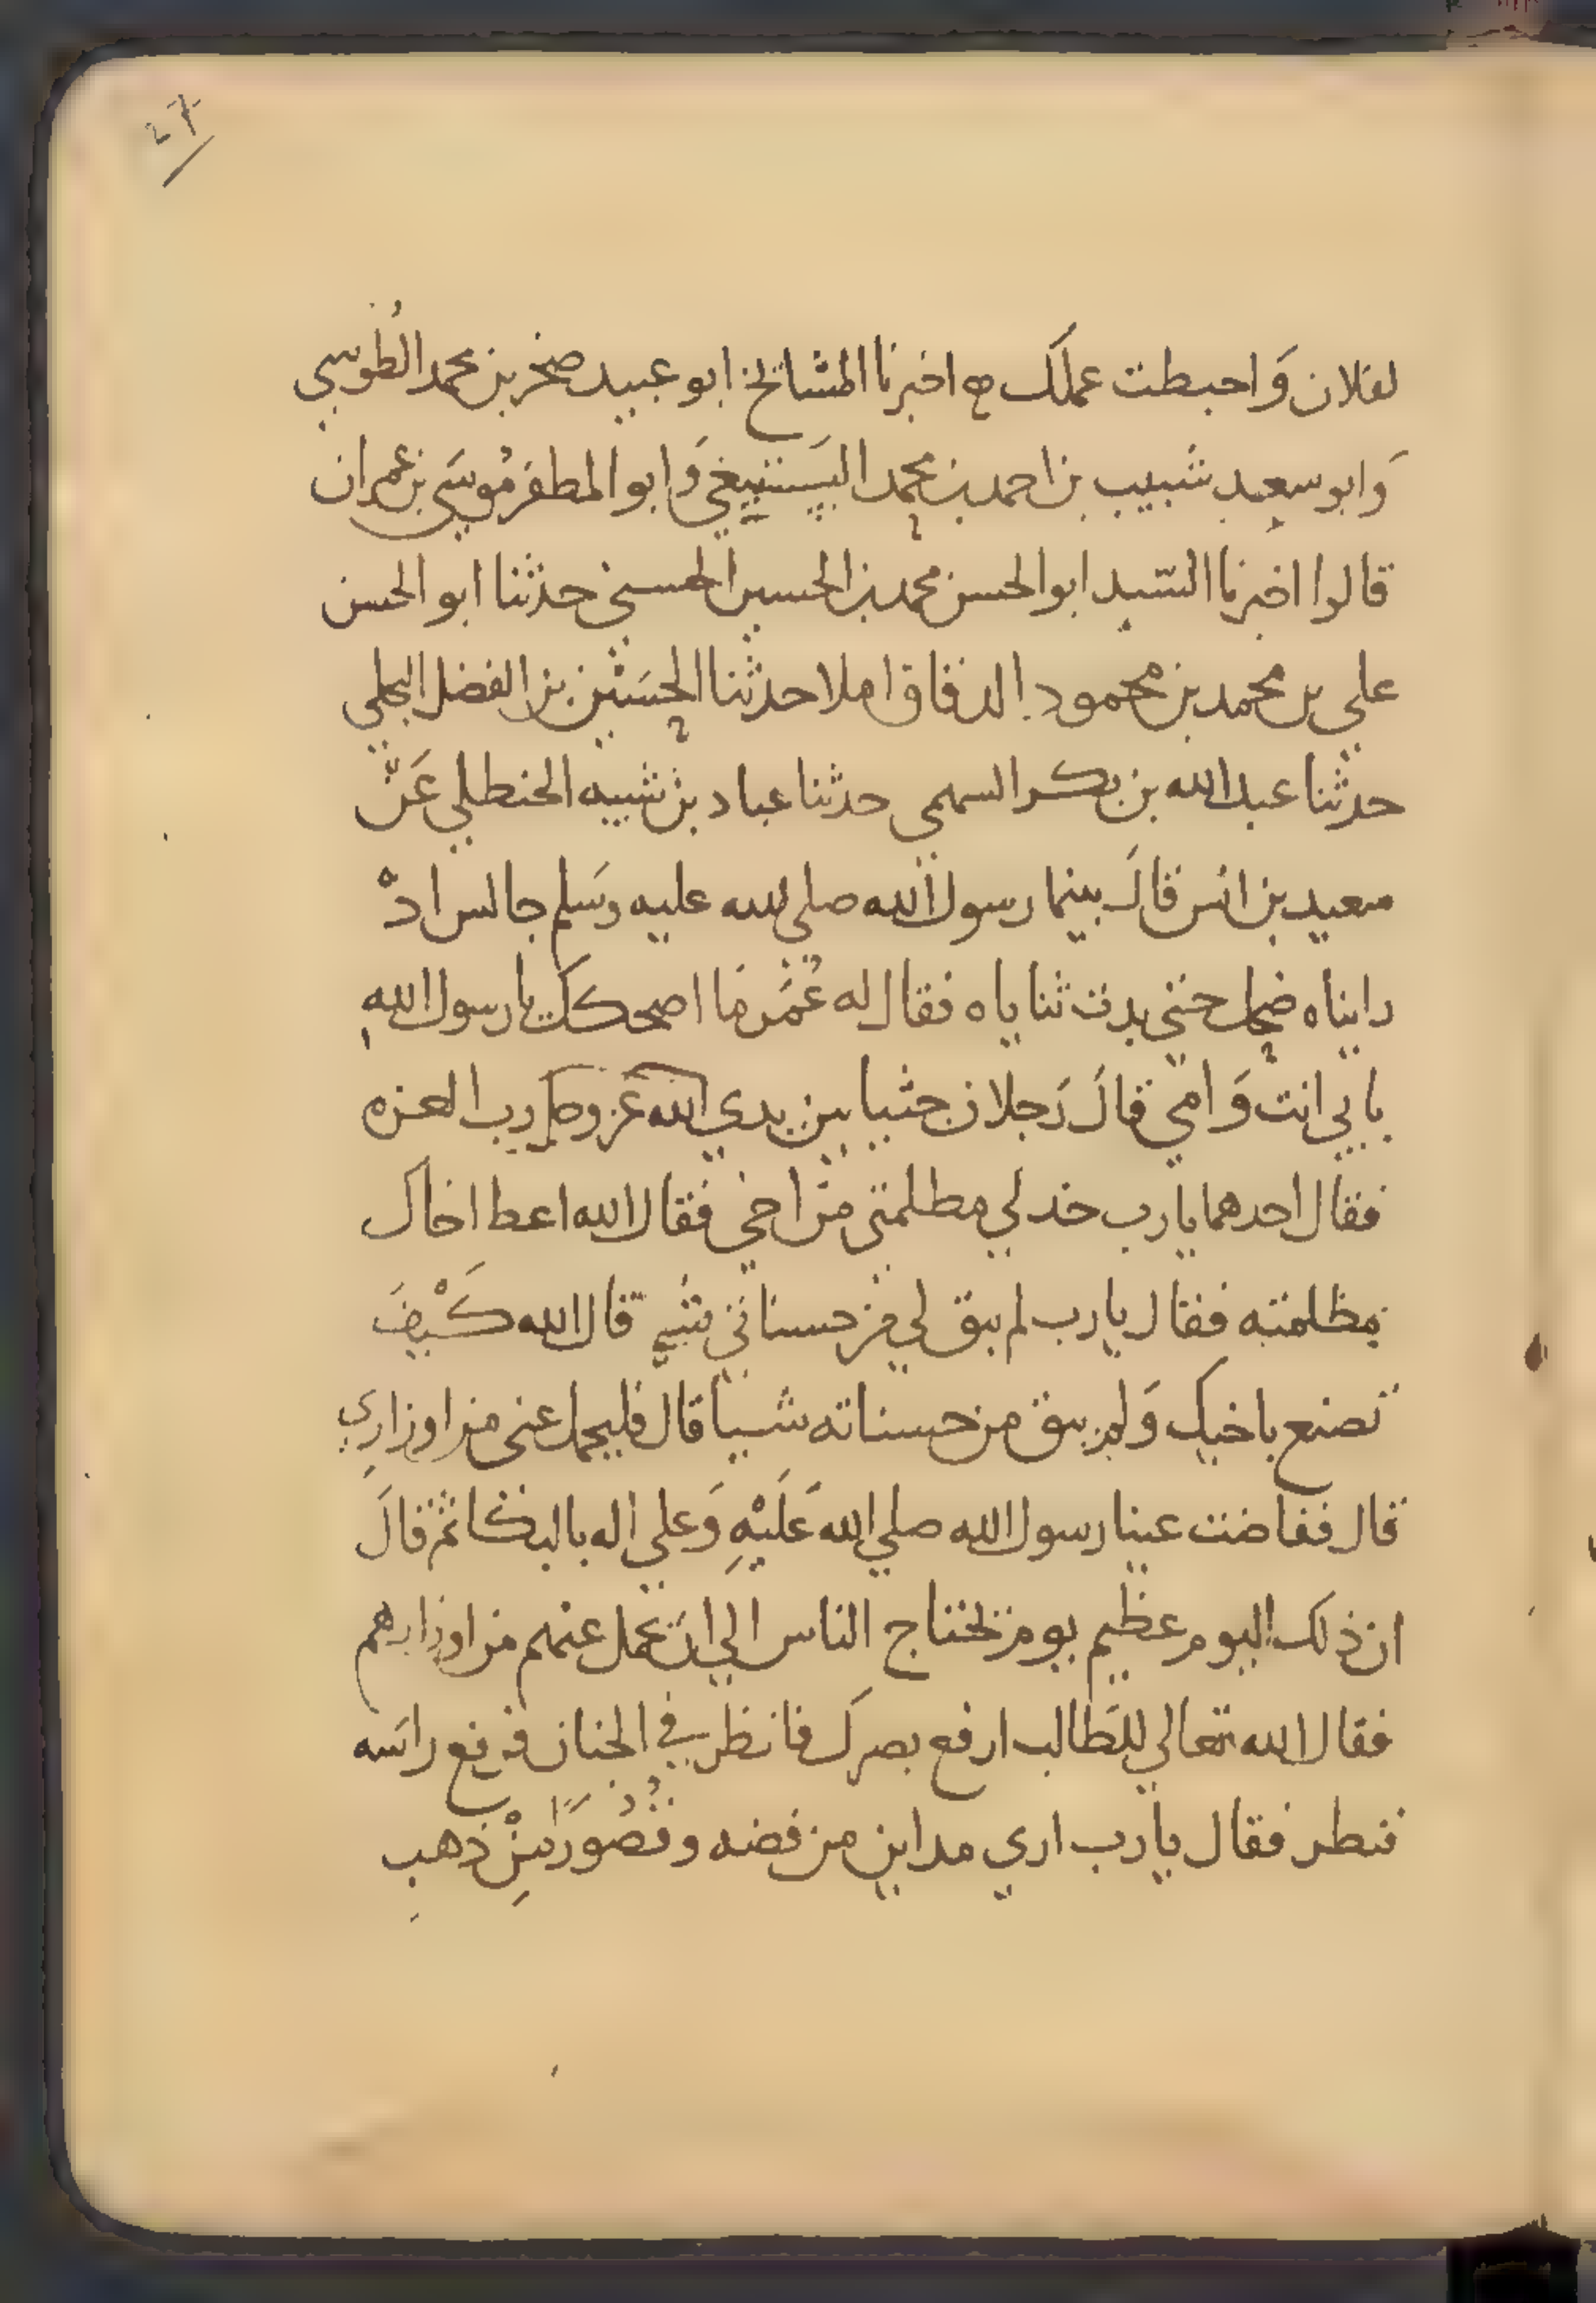 27
لفلان وَاحبطت عملك ه اخبرنا المشائخ ابو عبيد صخر بن محمد الطُوسي
وَابو سعيد شَبيب بن احمد بن محمد البَستيغي وَابو المظفر مُوسَى بن عمران
قالوا اخبرنا السَّيد ابو الحسن محمد بن الحسين الحسني حدثنا ابو الحسن
علي بن محمد بن محمود الدقاق املا حدثنا الحسَين بن الفضل البجلي
حدثنا عبد الله بن بكر السهمي حدثنا عباد بن شيبه الحنطلي عَن
سعيد بن انس قالَ بينما رسول الله صلى الله عليه وسَلم جالس ادْ
رايناه ضحك حتي بدت ثناياه فقال له عُمَر مَا اضحكك يا رسول اللهِ
بابي انت وَامي قالَ رَجلان جثيا بين يدي الله عز وجل رب العزه
فقال احدهما يا رب خد لي مطلمتي من اخي فقال الله اعط اخاك
مظلمته فقال يا رب لم يبق لي من حسناتي شي قال الله كَيْفَ
تصنع باخيك وَلم يبق من حسناته شيا قال فليحمل عني من اوزاري
قال ففاضت عينا رسول الله صلي الله عَلَيْهِ وَعلي اله بالبكا ثم قالَ
ان ذلك اليوم عظيم يوم يحتاج الناس الي ان يحمل عنهم من اوزارهم
فقال الله تعالي للطالب ارفع بصرك فانظر في الجنان فرفع راسَه
فنطر فقال يا رب اري مداين من فضه وقُصُورًا مِنْ ذهبِ